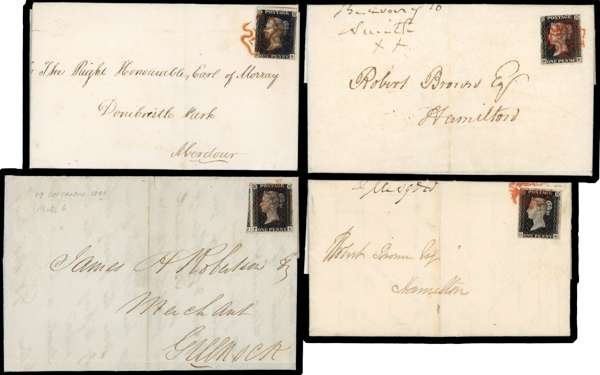 The Right Honourable, Earl of Morray
Donibristle Park
Aberdour
POSTAGE
ONE PENNY
Smith
XX
Robert Brown Esq
Hamilton
POSTAGE
ONE PENNY
James A Robertson Esq
Merchant
Greenock
POSTAGE
ONE PENNY
Robert Brown Esq
Hamilton
POSTAGE
ONE PENNY